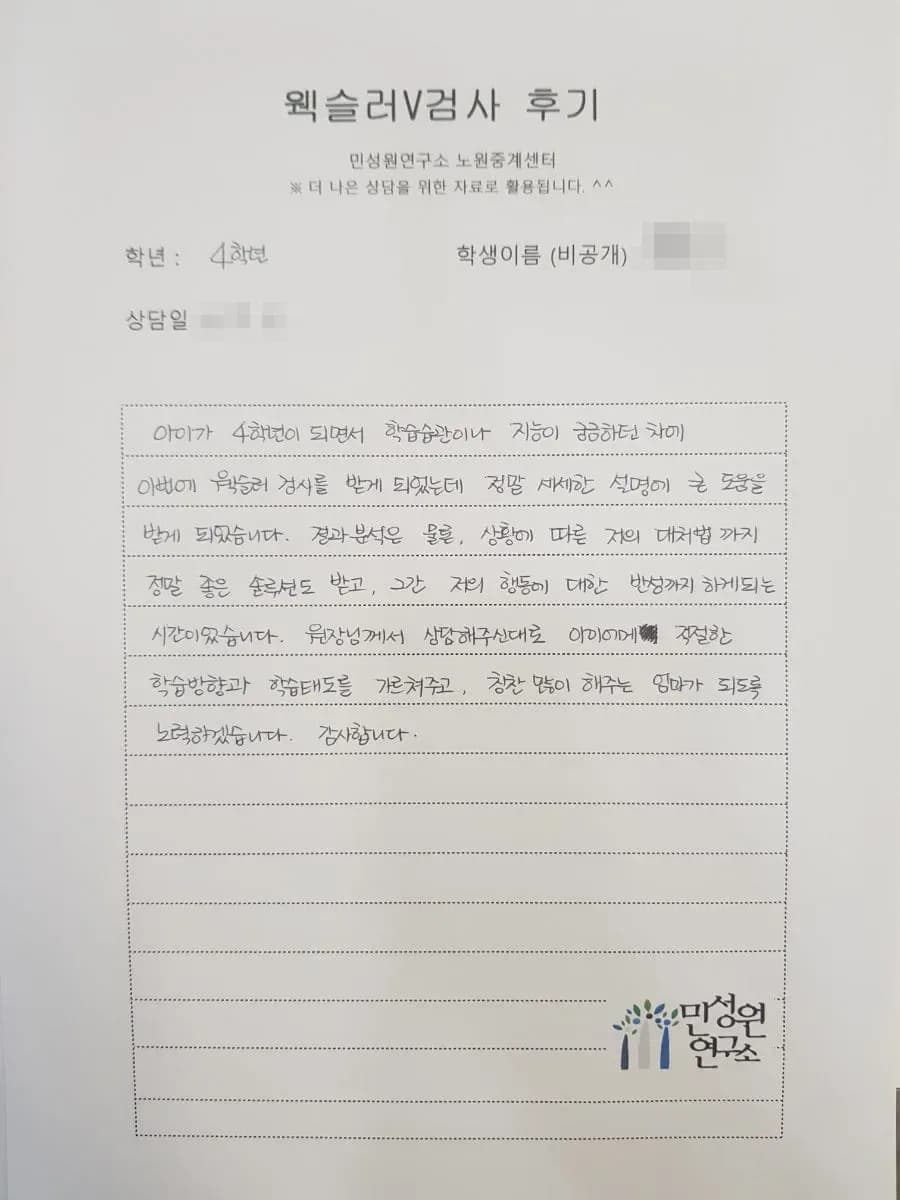 웩슬러V검사 후기
민성원연구소 노원중계센터
※ 더 나은 상담을 위한 자료로 활용됩니다. ^^
학년 : 4학년 학생이름 (비공개)
상담일
아이가 4학년이 되면서 학습습관이나 지능이 궁금하던 차에
이번에 웩슬러 검사를 받게 되었는데 정말 세세한 설명에 큰 도움을
받게 되었습니다. 결과분석은 물론, 상황에 따른 저의 대처법 까지
정말 좋은 솔루션도 받고, 그간 저의 행동에 대한 반성까지 하게되는
시간이었습니다. 원장님께서 상담해주신대로 아이에게 적절한
학습방향과 학습태도를 가르쳐주고, 칭찬 많이 해주는 엄마가 되도록
노력하겠습니다. 감사합니다.
민성원
연구소